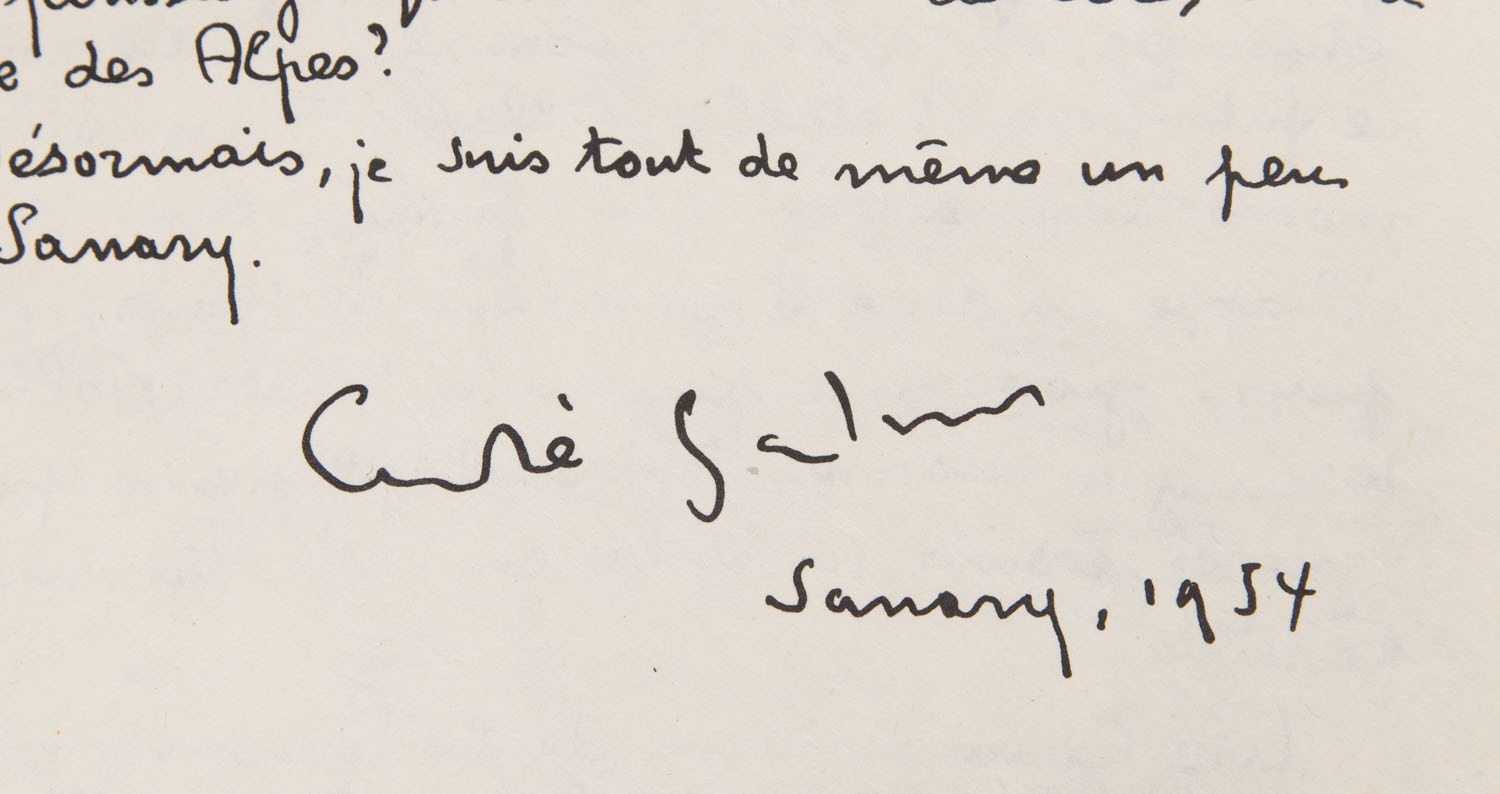 des Alpes?
ésormais, je suis tout de même un peu
Sanary.
André Salmon
Sanary, 1954